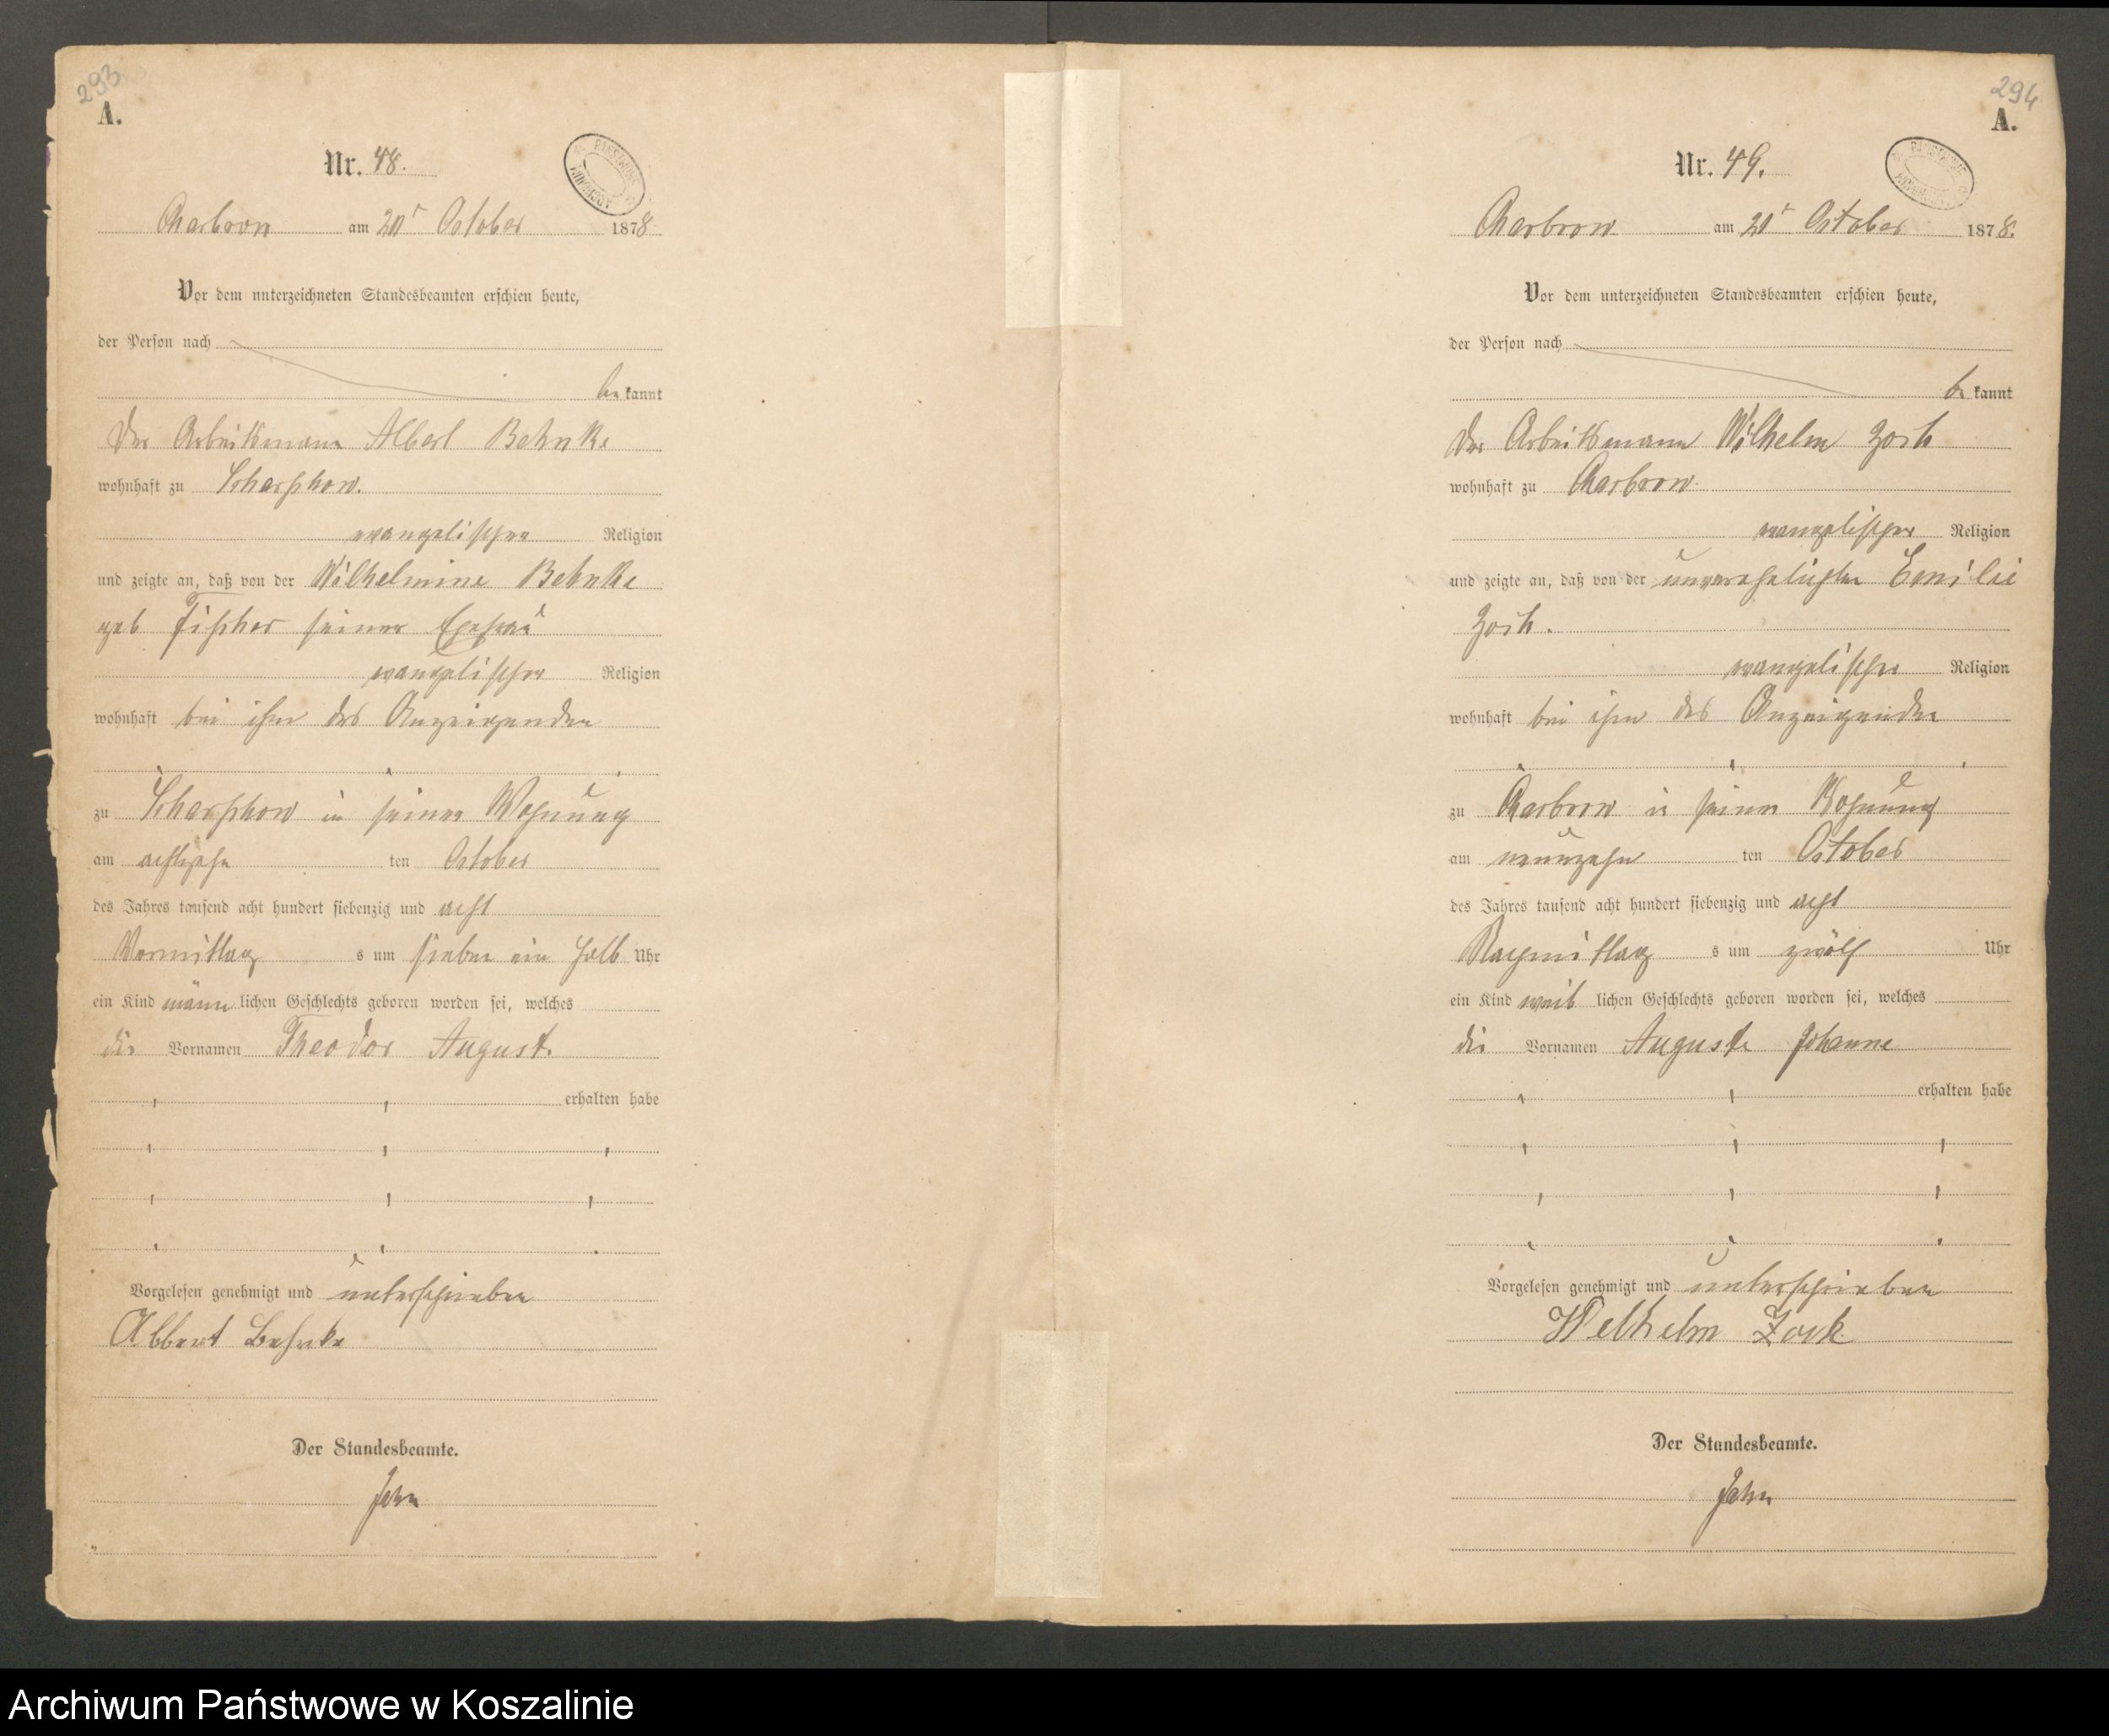 293
A.
Nr. 48.
Charbrow am 20t October 1878
Vor dem unterzeichneten Standesbeamten erschien heute,
der Person nach
be kannt
Der Arbeitsmann Albert Behnke
wohnhaft zu Scharschow.
evangelischer Religion
und zeigte an, daß von der Wilhelmine Behnke
geb Fischer seiner Ehefrau
evangelischer Religion
wohnhaft bei ihm des Anzeigenden
zu Scharschow in seiner Wohnung
am achtzehn ten October
des Jahres tausend acht hundert siebenzig und acht
Vormittag s um sieben ein halb Uhr
ein Kind männ lichen Geschlechts geboren worden sei, welches
die Vornamen Theodor August.
erhalten habe
Vorgelesen genehmigt und unterschrieben
Albert Behnke
Der Standesbeamte.
Jahn
294
A.
Nr. 49.
Charbrow am 20t October 1878.
Vor dem unterzeichneten Standesbeamten erschien heute,
der Person nach
be kannt
Der Arbeitsmann Wilhelm Zoch
wohnhaft zu Charbrow.
evangelischer Religion
und zeigte an, daß von der unverehelichten Emilie
Zoch.
evangelischer Religion
wohnhaft bei ihm des Anzeigenden
zu Charbrow in seiner Wohnung
am neunzehn ten October
des Jahres tausend acht hundert siebenzig und acht
Nachmittag s um zwölf Uhr
ein Kind weib lichen Geschlechts geboren worden sei, welches
die Vornamen Auguste Johanne
erhalten habe
Vorgelesen genehmigt und unterschrieben
Welhelm Zock
Der Standesbeamte.
Jahn
Archiwum Państwowe w Koszalinie